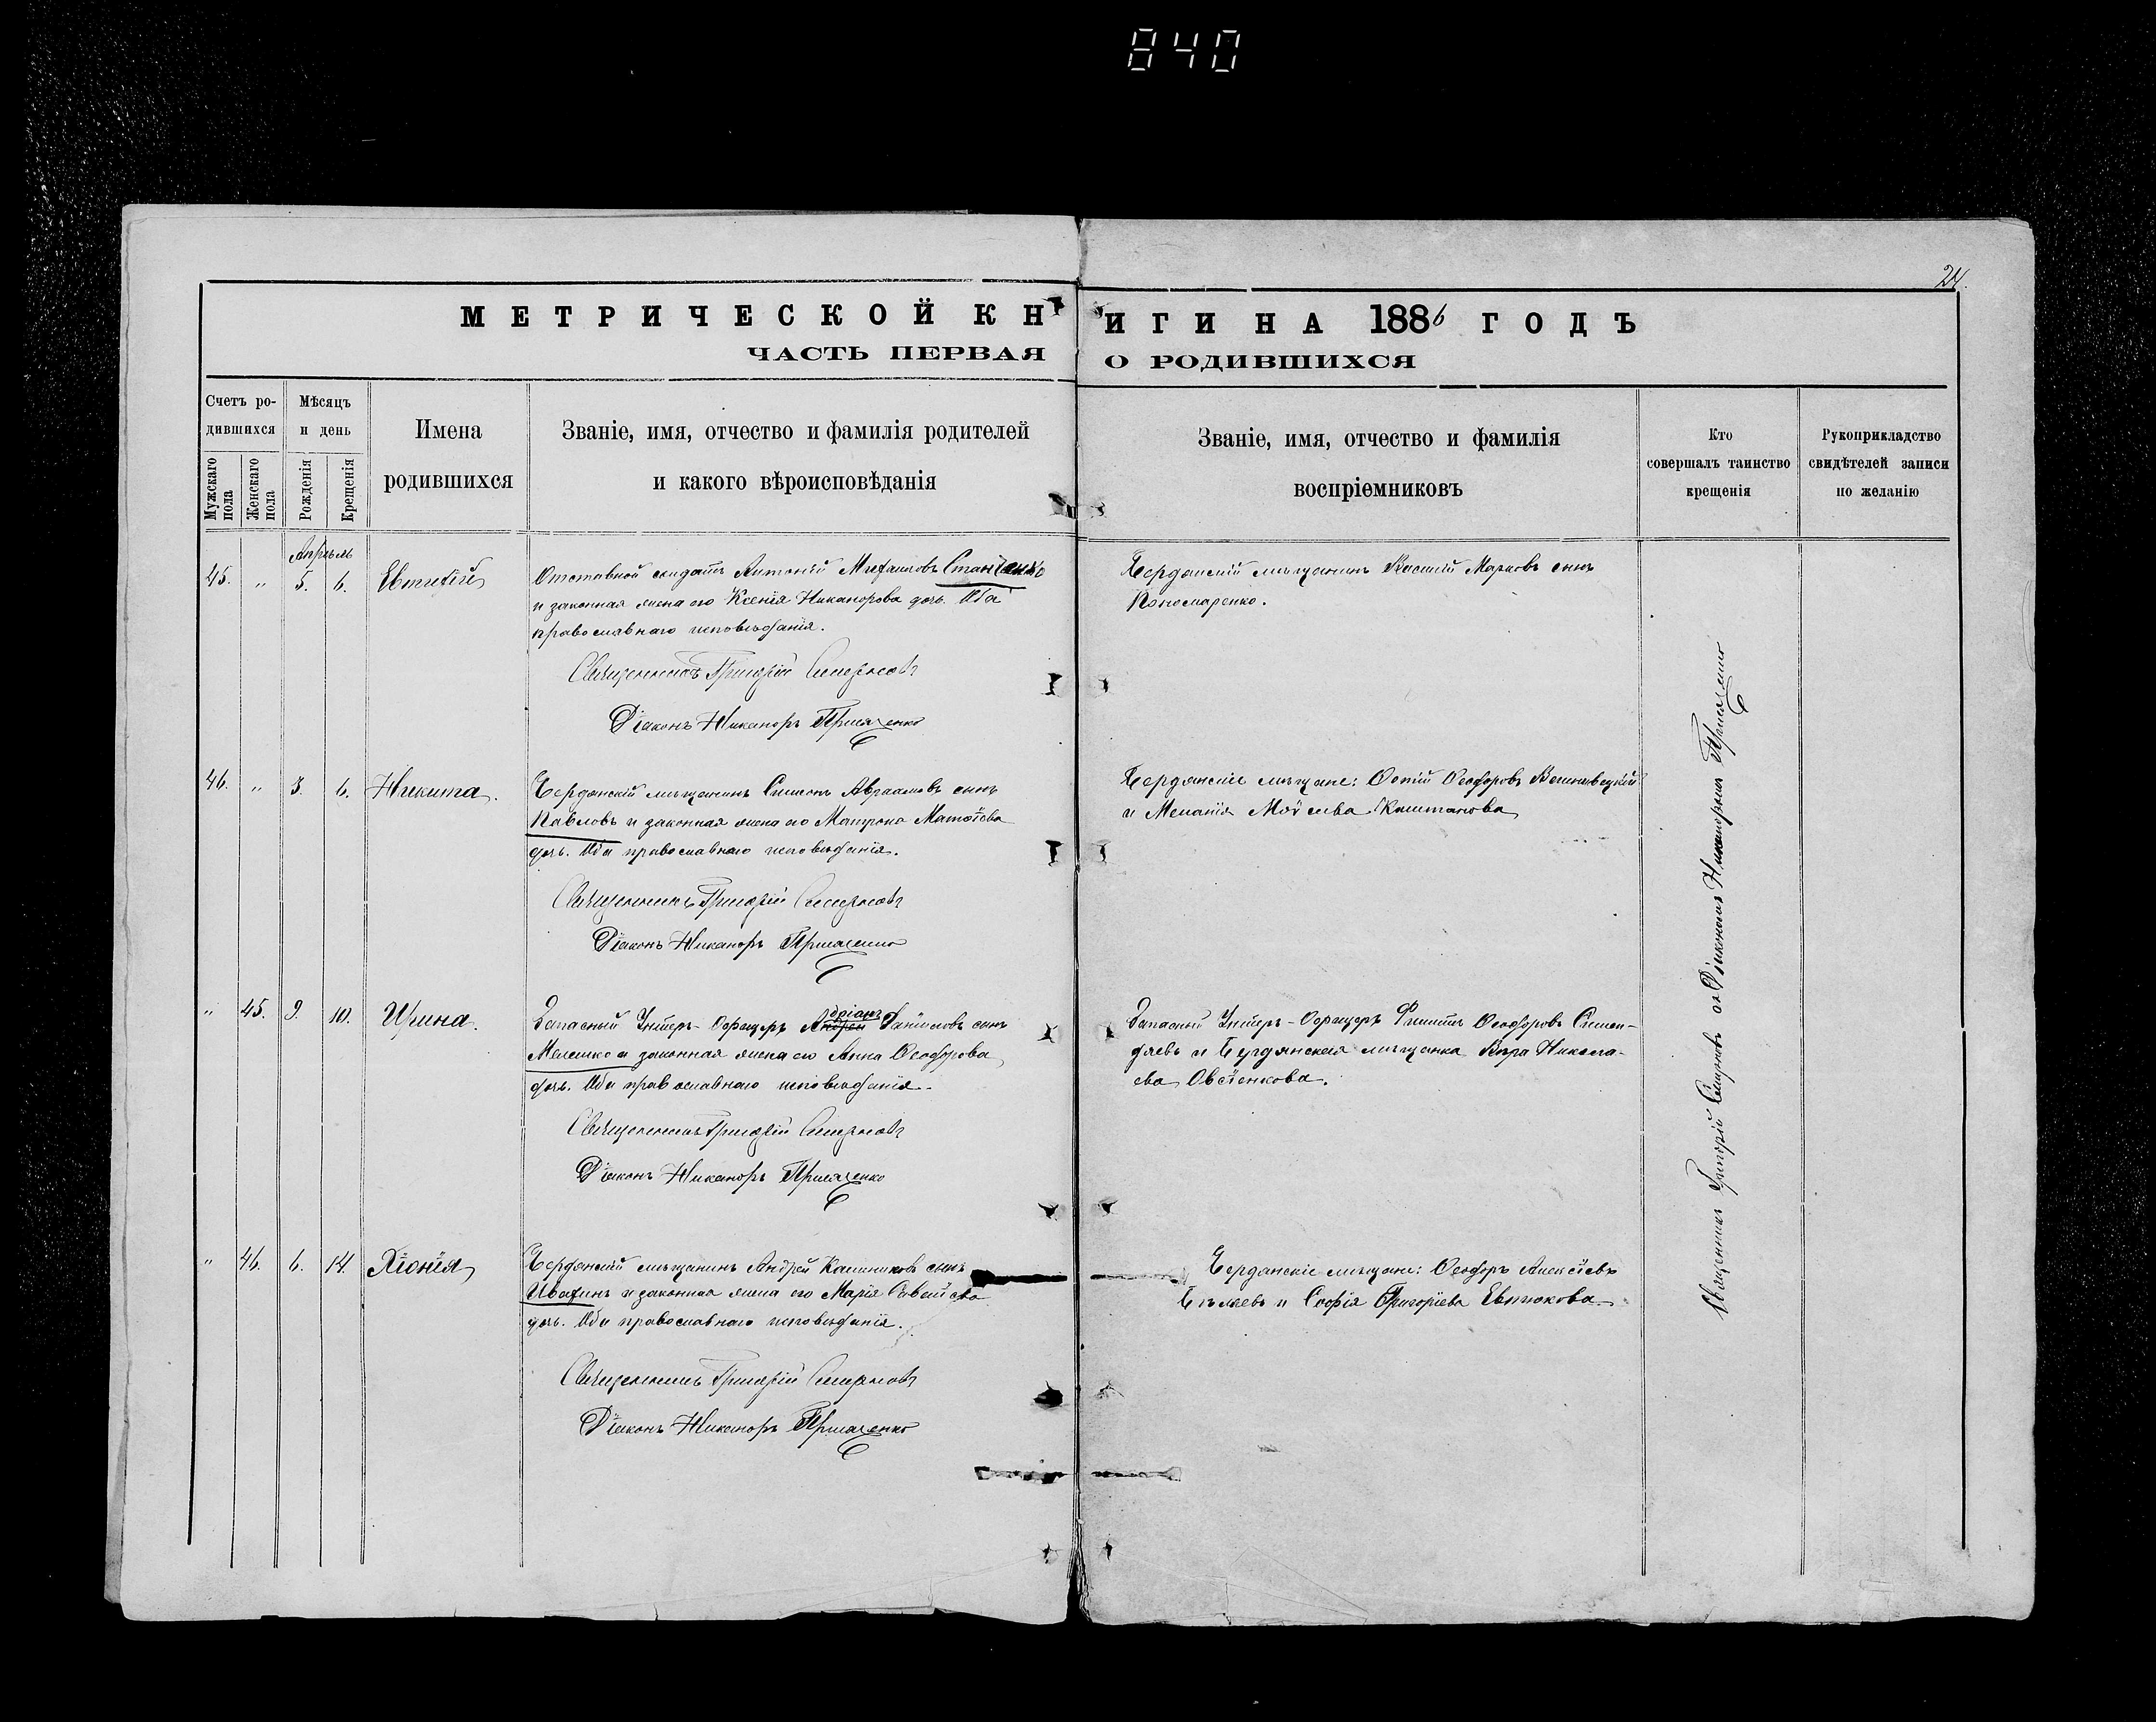 840
24.
МЕТРИЧЕСКОЙ КНИГИ НА 1886 ГОДЪ
ЧАСТЬ ПЕРВАЯ О РОДИВШИХСЯ
Счетъ родившихся
Мужскаго пола
Женскаго пола
Мѣсяцъ и день
Рожденія
Крещенія
Имена
родившихся
Званіе, имя, отчество и фамилія родителей
и какого вѣроисповѣданія
Званіе, имя, отчество и фамилія
воспріемниковъ
Кто
совершалъ таинство
крещенія
Рукоприкладство
свидѣтелей записи
по желанію
Апрѣль
45. „ 5. 6. Евтихій
Отставной солдатъ Антоній Митрофановъ
и законная жена его Ксенія Никанорова дочь. Оба
православнаго исповѣданія.
Священникъ Григорій Смирновъ
Діаконъ Никаноръ Присяженко
Бердянскій мѣщанинъ Василій Марковъ сынъ
Пономаренко.
46. „ 3. 6. Никита.
Бердянскій мѣщанинъ Симеонъ Авраамовъ сынъ
Павловъ и законная жена его Матрона
дочь. Оба православнаго исповѣданія.
Священникъ Григорій Смирновъ
Діаконъ Никаноръ Присяженко
Бердянскіе мѣщане: Фотій Ѳеодоровъ
и Меланія Каштанова
„ 45. 9. 10. Ирина.
Запасный Унтеръ-Офицеръ Адріанъ Даніиловъ сынъ
Мелешко и законная жена его Анна Ѳеодорова
дочь. Оба православнаго исповѣданія.
Священникъ Григорій Смирновъ
Діаконъ Никаноръ Присяженко
Запасный Унтеръ-Офицеръ Филиппъ Ѳеодоровъ
и Бердянская мѣщанка Вѣра Никола-
ева Овсѣенкова.
„ 46. 6. 14. Хіонія
Бердянскій мѣщанинъ Андрей Калинниковъ сынъ
Ивахинъ и законная жена его Марія
дочь. Оба православнаго исповѣданія.
Священникъ Григорій Смирновъ
Діаконъ Никаноръ Присяженко
Бердянскіе мѣщане: Ѳеодоръ Алексѣевъ
Бѣляевъ и Софія Григоріева Евтюкова
Священникъ Григорій Смирновъ съ Діакономъ Никаноромъ Присяженко